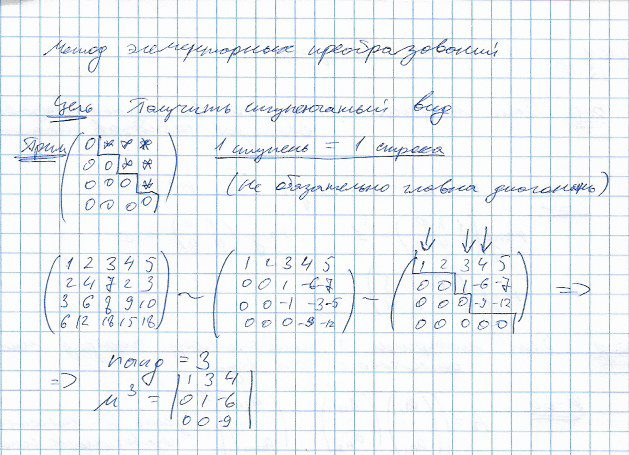 Метод элементарных преобразований
Цель Получить ступенчатый вид
Прим
0 * * *
0 0 * *
0 0 0 *
0 0 0 0
1 ступень = 1 строка
(Не обязательно главная диагональ)
1 2 3 4 5
2 4 7 2 3
3 6 8 9 10
6 12 18 15 18
~
1 2 3 4 5
0 0 1 -6 -7
0 0 -1 -3 -5
0 0 0 -9 -12
~
1 2 3 4 5
0 0 1 -6 -7
0 0 0 -9 -12
0 0 0 0 0
=>
=>
ранг = 3
M³ =
1 3 4
0 1 -6
0 0 -9